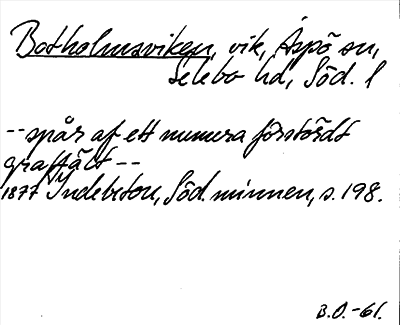 Botholmsviken, vik, Äspö sn,
Selebo hd, Söd. l
-- spår af ett numera förstördt
graffält --
1877 Indebetou, Söd. minnen, s. 198.
B.O.-61.